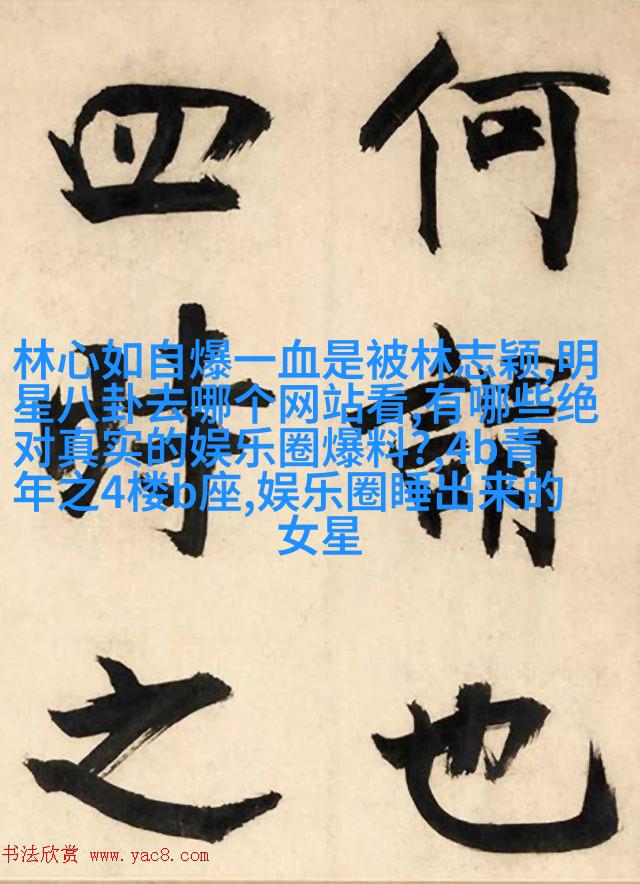 何謂也
四時之
林心如自爆一血是被林志颖,明
星八卦去哪个网站看,有哪些绝
对真实的娱乐圈爆料?,4b青
年之4楼b座,娱乐圈睡出来的
女星
书法欣赏 www.yac8.com